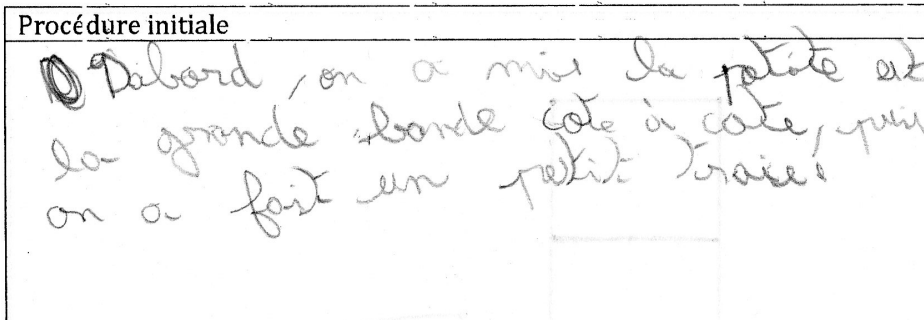 Procédure initiale
D'abord, on a mis la petite et
la grande bande cote à cote, puis
on a fait un petit trait.